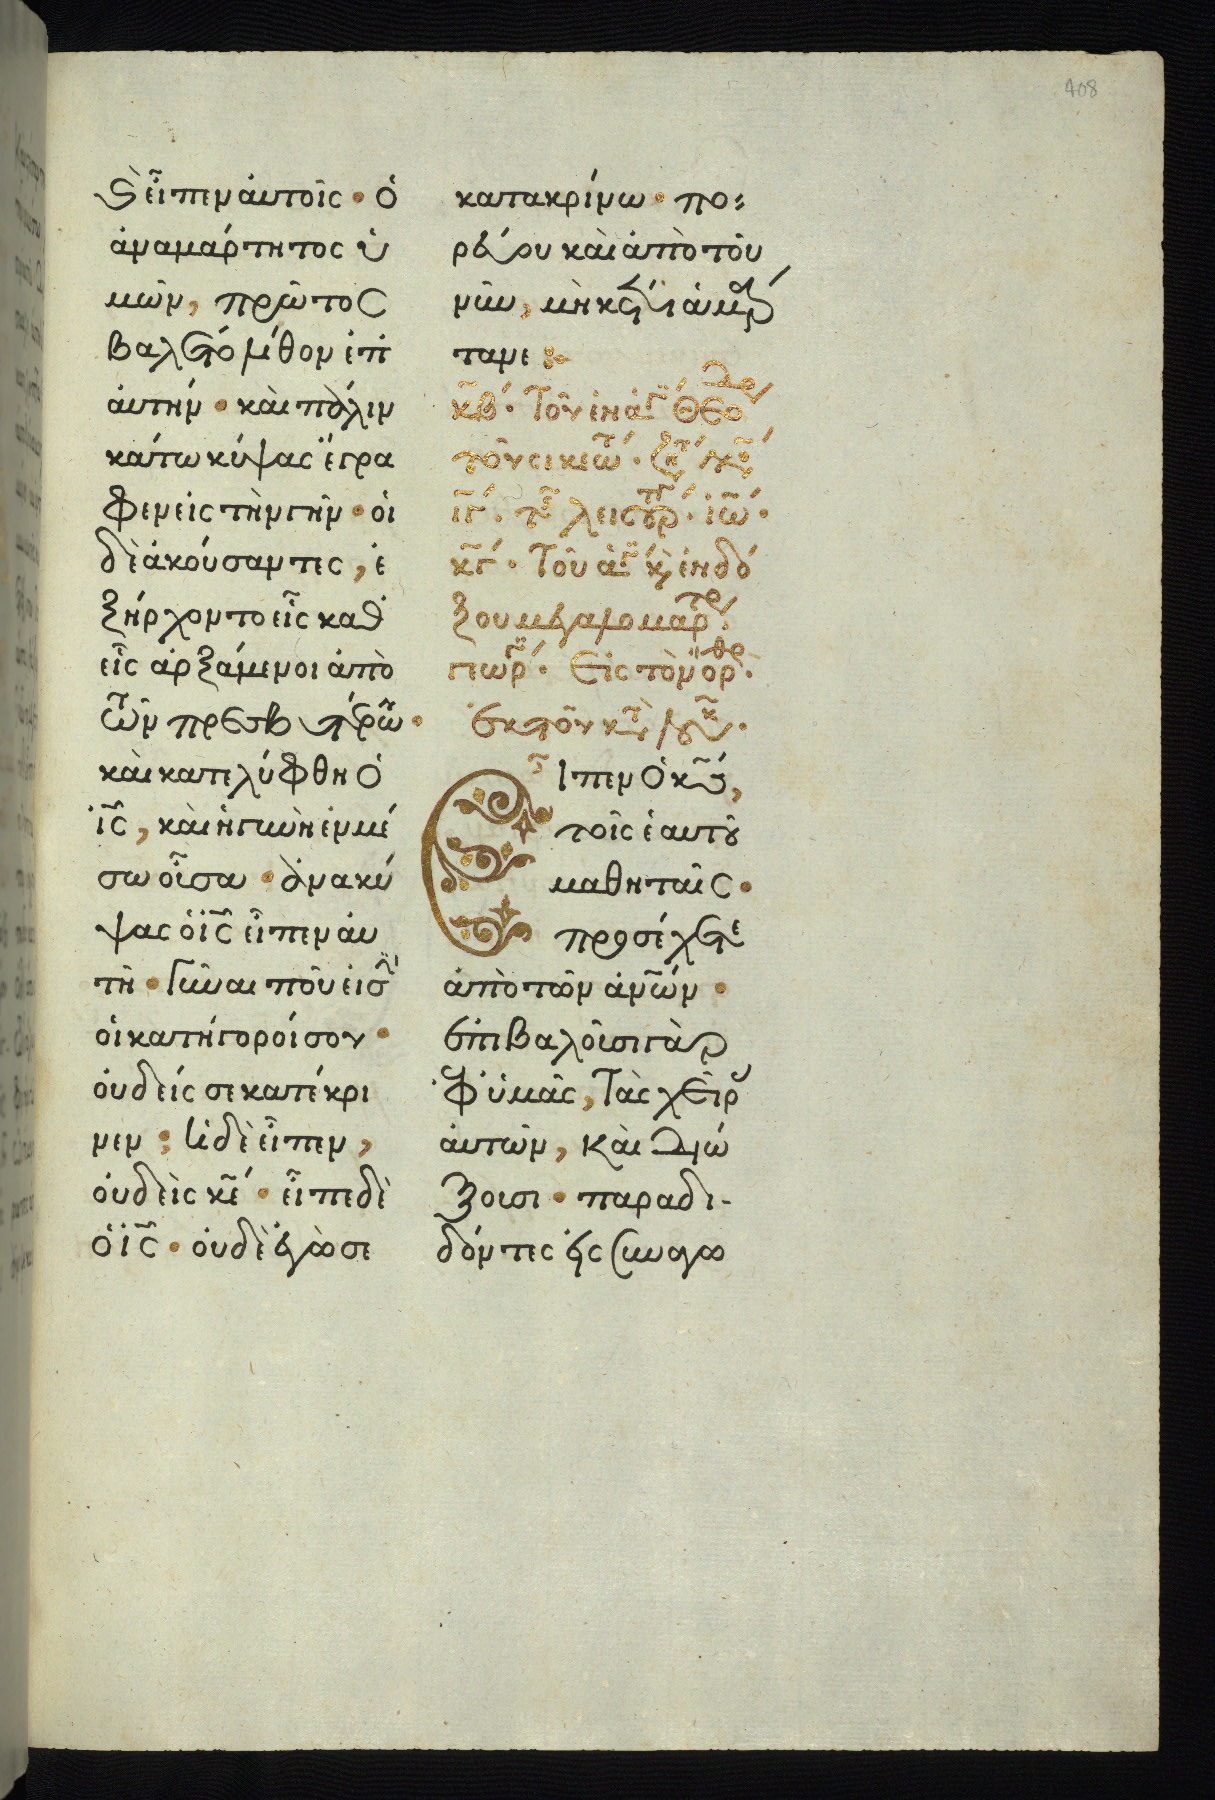 408
ϛ̀ εἶπεν ἀυτοῖς · ὁ
ἀναμάρτητος ὑ
μῶν, πρῶτος
βαλέτω λίθον ἐπ'
ἀυτήν · καὶ πάλιν
κάτω κύψας ἔγρα
φεν εἰς τὴν γῆν · οἱ
δὲ ἀκούσαντες, ἐ
ξήρχοντο εἷς καθ'
εἷς ἀρξάμενοι ἀπὸ
τῶν πρεσβυτέρων ·
καὶ κατελύφθη ὁ
ἰς̅, καὶ ἡ γυνὴ ἐν μέ
σω οὖσα · ἀνακύ
ψας ὁ ἰς̅ εἶπεν ἀυ
τῆ · Γύναι ποῦ εἰσὶν
οἱ κατήγοροί σου ·
ὀυδείς σε κατέκρι
νεν ; ἡ δὲ εἶπεν,
ὀυδεὶς κε̅ · εἶπε δὲ
ὁ ἰς̅ · ὀυδὲ ἐγώ σε
κατακρίνω · πο
ρεύου καὶ ἀπὸ τοῦ
νῦν, μηκέτι ἁμάρ
τανε :
κβ̅ · Τοῦ ἐν ἁγ Θεο
τοῦ συκεώτ · ζητ
ιγ̅ · τῆς λειτουργ · ἰω ·
κγ̅ · Τοῦ ἁγ κ, ἐνδό
ξου μεγαλομάρτ
γεωργ · Εἰς τὸν ὄρθρ ·
ἐκ τοῦ κατ λουκ ·
Εἶπεν ὁ κς̅,
τοῖς ἑαυτοῦ
μαθηταῖς ·
προσέχετε
ἀπὸ τῶν ἀνων̅ ·
ἐπιβαλοῦσι γὰρ
ἐφ' ὑμᾶς, Τὰς χεῖρ
ἀυτῶν, καὶ διώ
ξουσι · παραδι-
δόντες εἰς συναγω